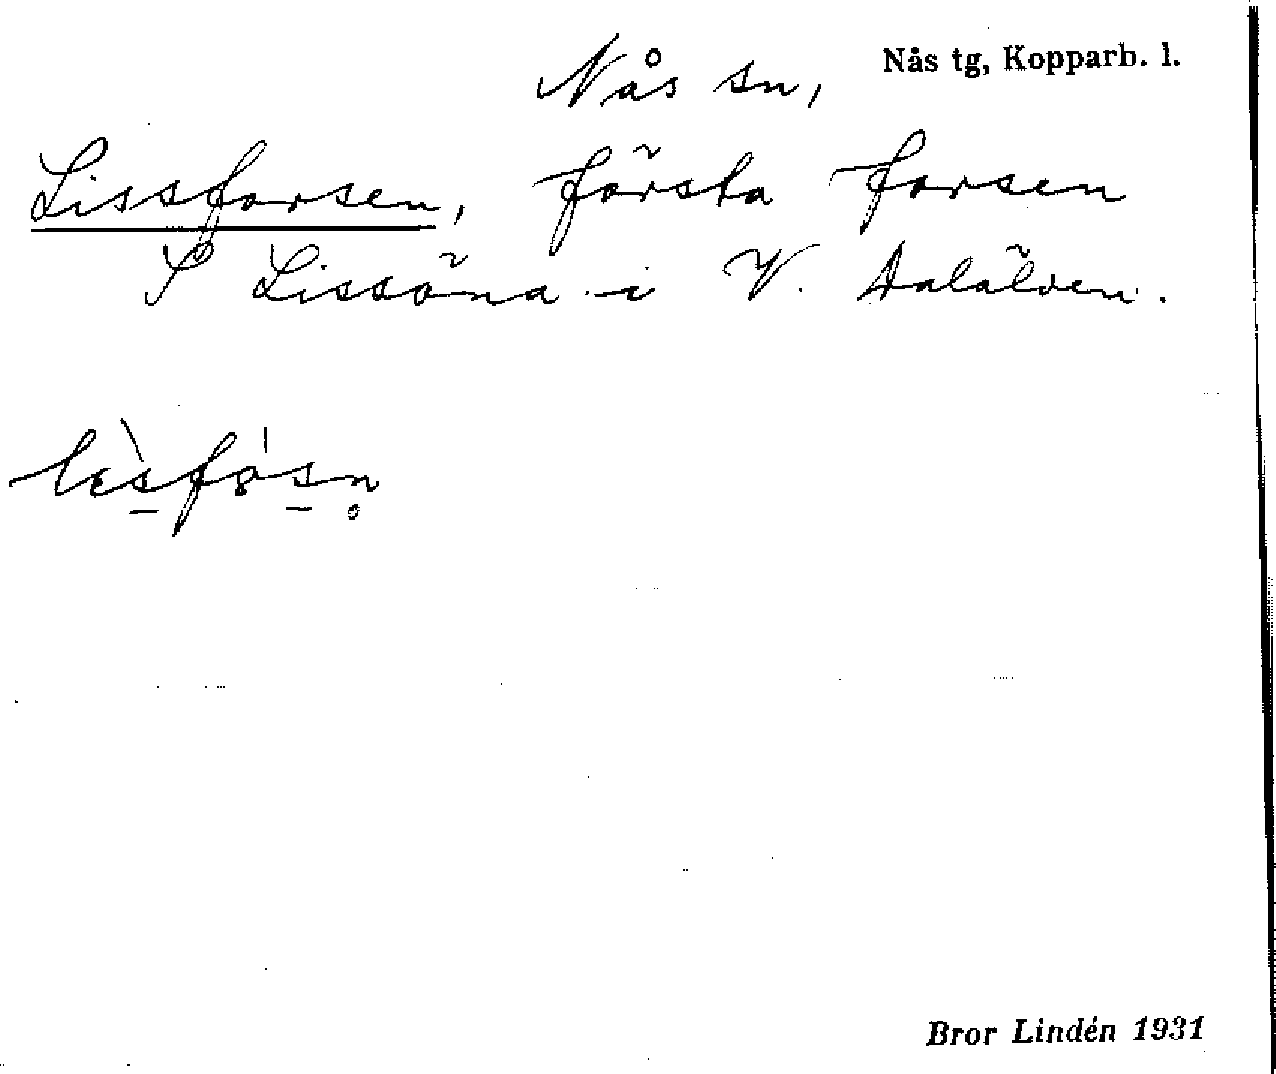 Nås tg, Kopparb. l.
Nås sn,
Lissforsen, första forsen
S Lissöna i V. Dalälven.
Bror Lindén 1931